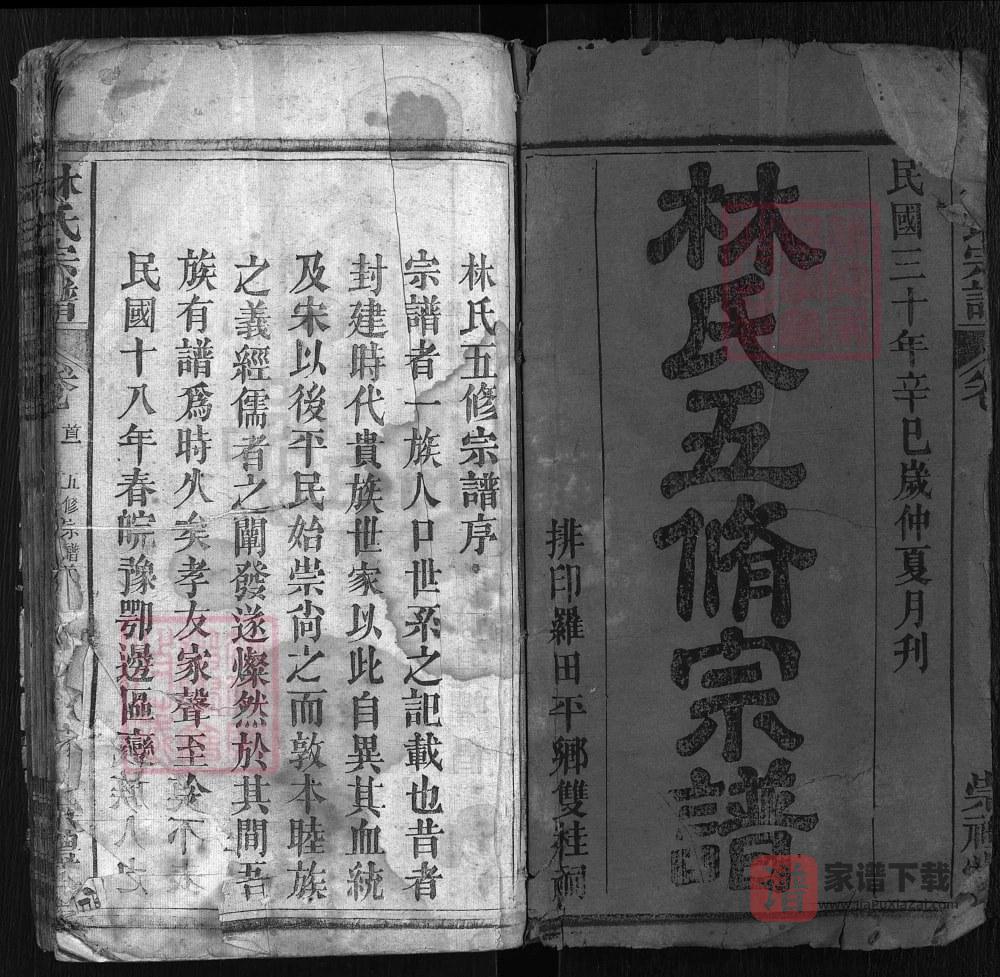 民國三十年辛巳歲仲夏月刊
林氏五脩宗譜
排印羅田平鄉雙桂祠
林氏五修宗譜序
宗譜者一族人口世系之記載也昔者
封建時代貴族世家以此自異其血統
及宋以後平民始崇尙之而敦本睦族
之義經儒者之闡發遂燦然於其間吾
族有譜爲時久矣孝友家聲至今
民國十八年春皖豫鄂邊區變
林氏宗譜
首
五修宗譜
宗譜
家谱下载
www.jiapuxiazai.com